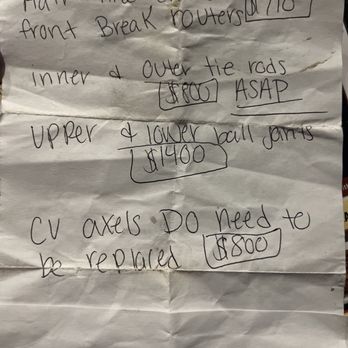 front Break routers
inner & outer tie rods
$800 ASAP
UPPer & lower ball joints
$1400
CV axels DO need to
be replaced $800